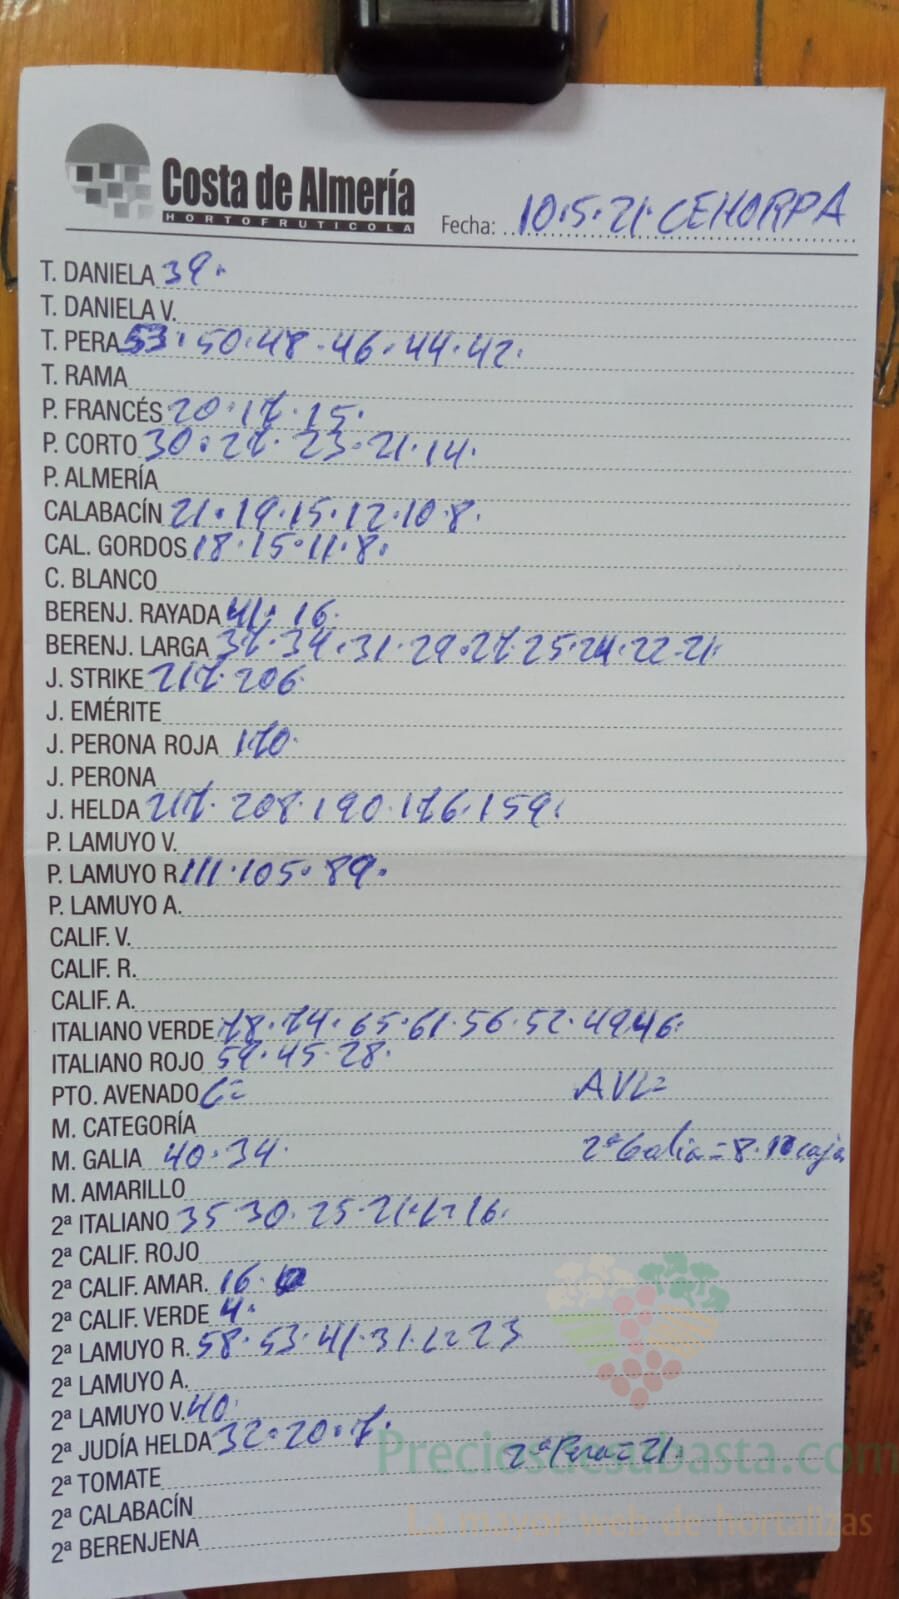 Costa de Almería
HORTOFRUTICOLA
Fecha: 10.5.21. CEHORPA
T. DANIELA 39.
T. DANIELA V.
T. PERA 53.50.48.46.44.42.
T. RAMA
P. FRANCÉS 20.17.15.
P. CORTO 30.27.23.21.14.
P. ALMERÍA
CALABACÍN 21.19.15.12.10.8.
CAL. GORDOS 18.15.11.8.
C. BLANCO
BERENJ. RAYADA 41. 16.
BERENJ. LARGA 37.34.31.29.27.25.24.22.21.
J. STRIKE 217.206
J. EMÉRITE
J. PERONA ROJA 170.
J. PERONA
J. HELDA 217.208.190.176.159.
P. LAMUYO V.
P. LAMUYO R. 111.105.89.
P. LAMUYO A.
CALIF. V.
CALIF. R.
CALIF. A.
ITALIANO VERDE 78.74.65.61.56.52.49.46.
ITALIANO ROJO 59.45.28.
PTO. AVENADO C= AVL=
M. CATEGORÍA
M. GALIA 40.34. 2ª Galia=8.
M. AMARILLO
2ª ITALIANO 35.30.25.21.L=16.
2ª CALIF. ROJO
2ª CALIF. AMAR. 16.
2ª CALIF. VERDE 4.
2ª LAMUYO R. 58.53.41.31.L=23
2ª LAMUYO A.
2ª LAMUYO V. 40.
2ª JUDÍA HELDA 32.20.7.
2ª Pera=21.
2ª TOMATE
2ª CALABACÍN
2ª BERENJENA
Preciosdesubasta.com
La mayor web de hortalizas